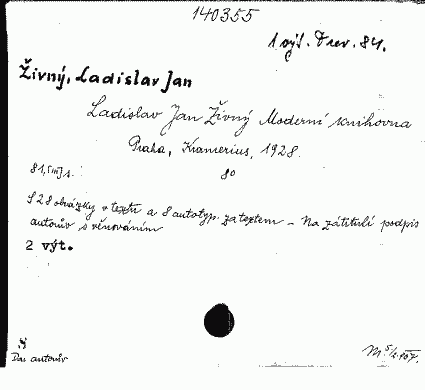 140355
1 výř. Prev. 84.
Živný, Ladislav Jan
Ladislav Jan Živný Moderní knihovna
Praha, Kramerius, 1928.
81, [III] s.
8°
S 28 obrázky v textu a 8 autotyp. za textem - Na zátitulí podpis
autorův s věnováním
2 výt.
Dar autorův